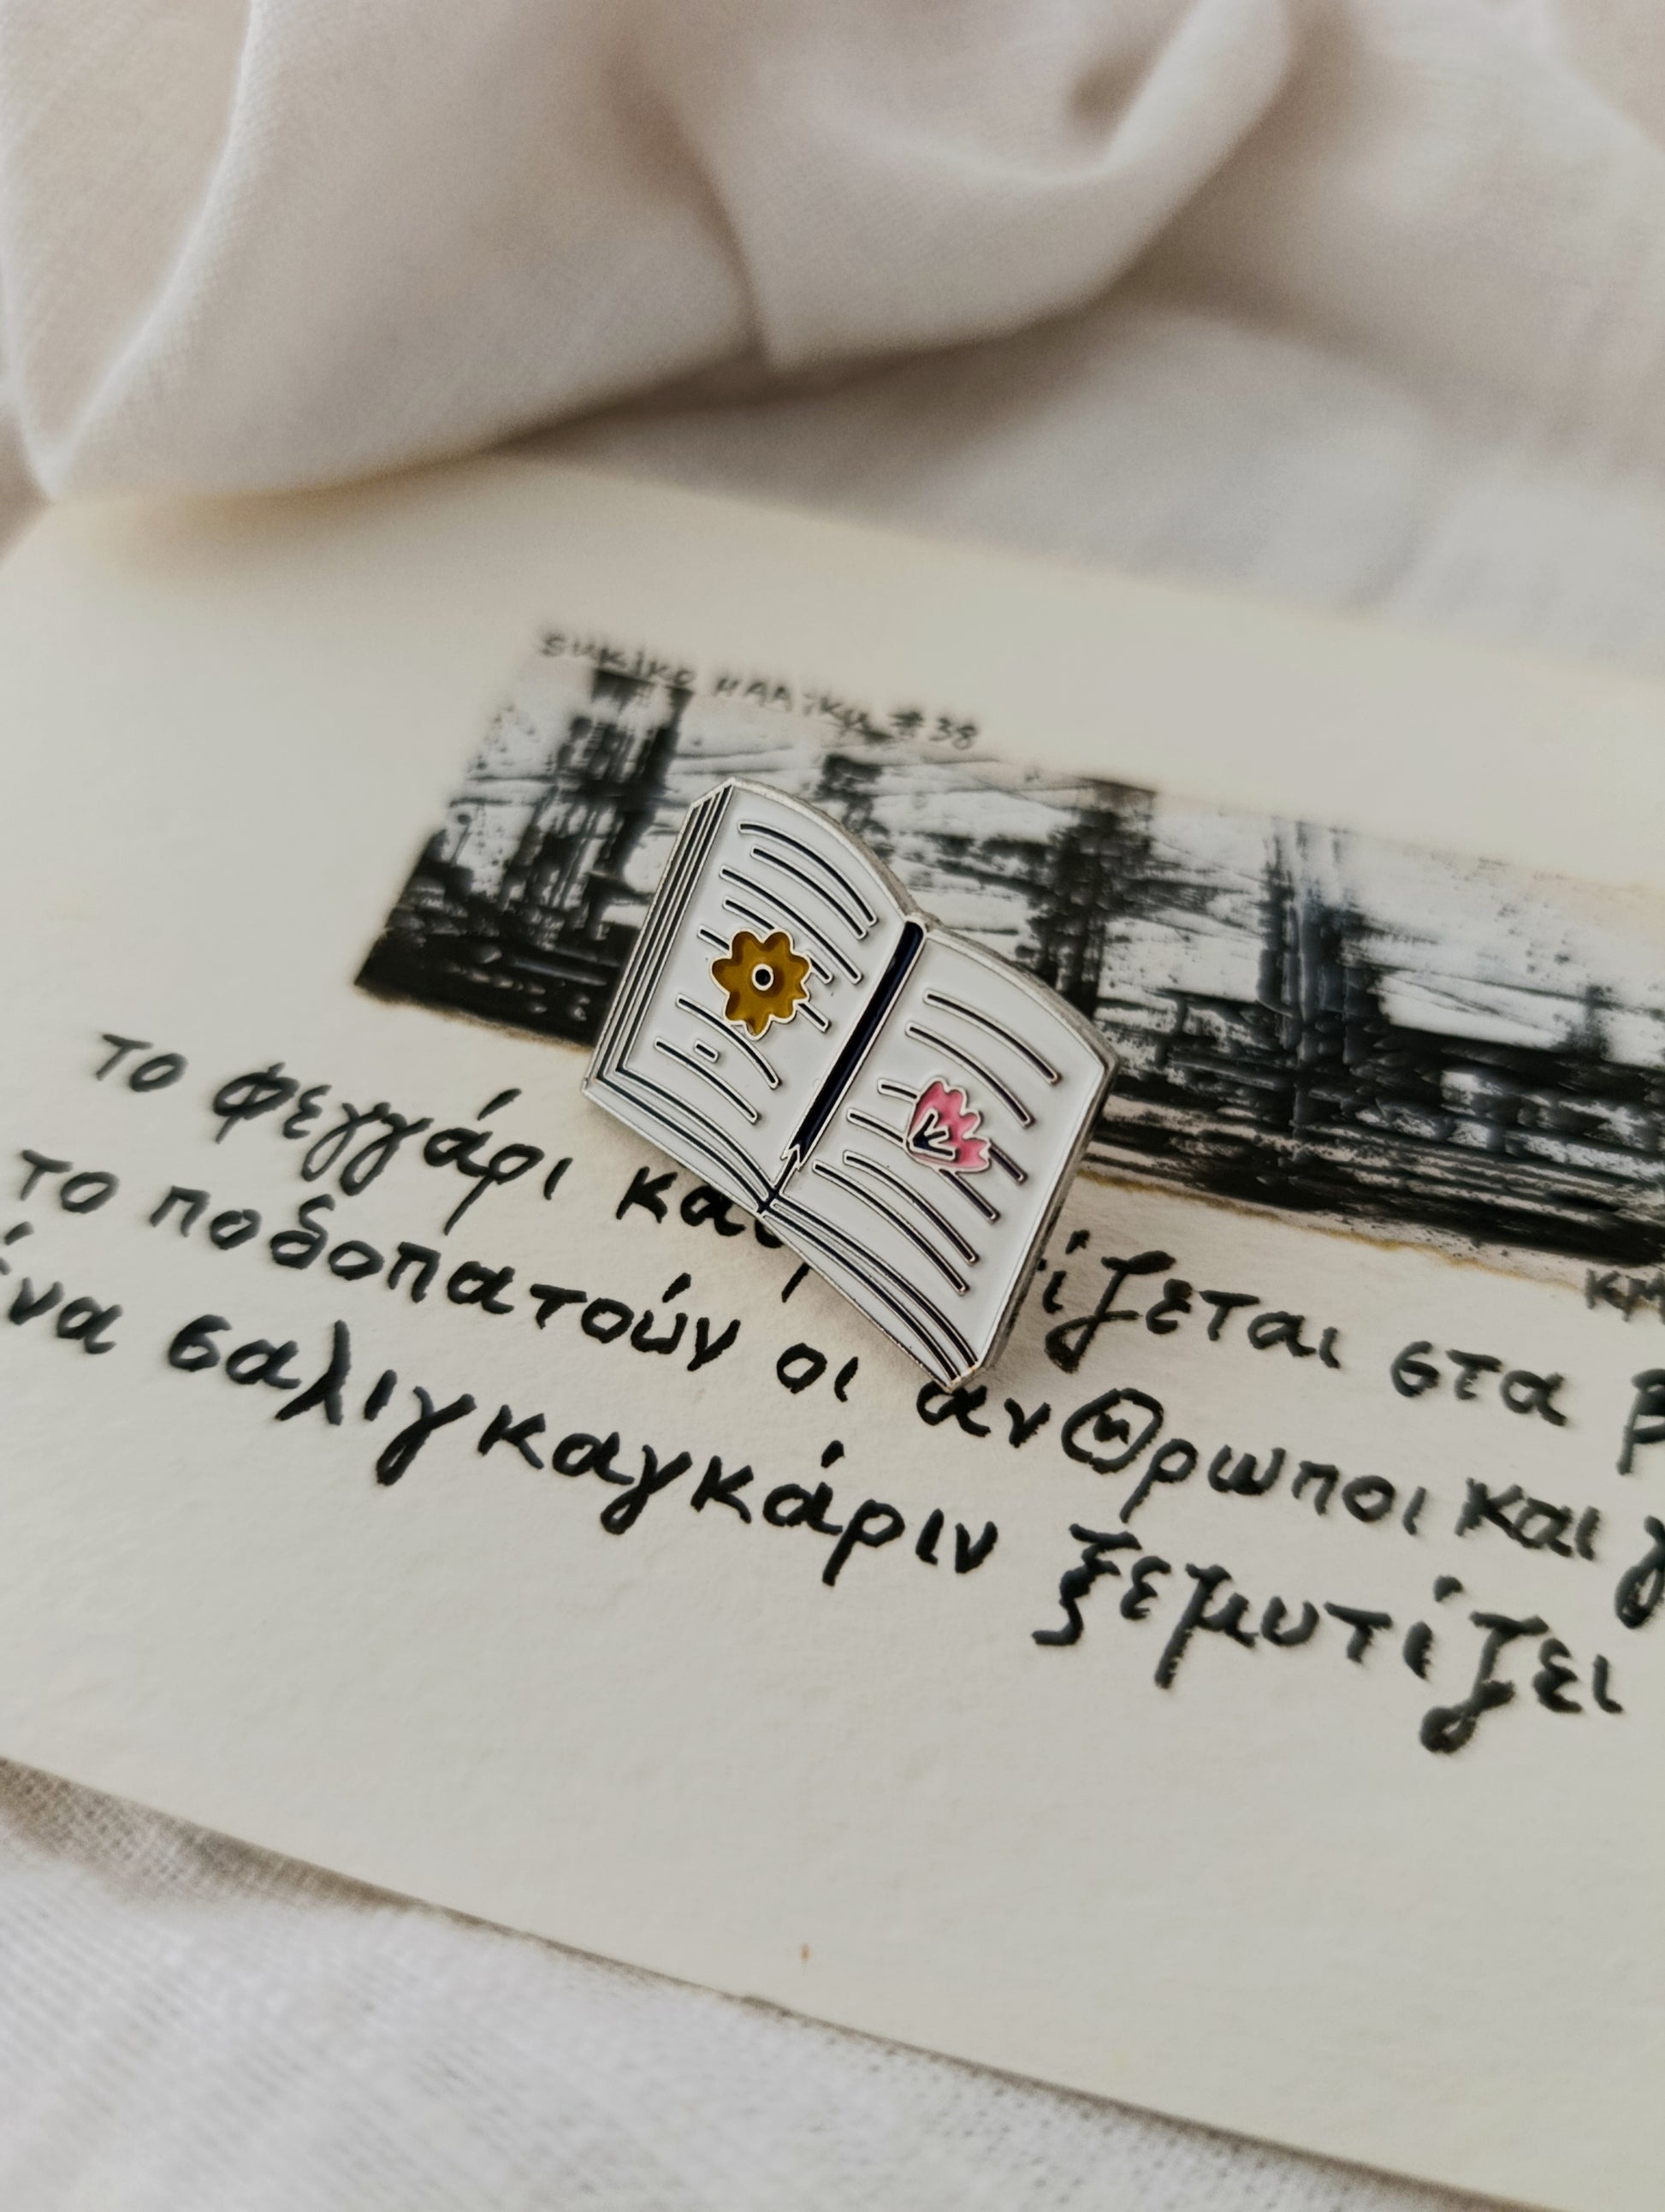 #38
το φεγγάρι ίζεται στα
το ποδοπατούν οι ανθρωποι και
ένα σαλιγκαγκάριν ξεμυτίζει